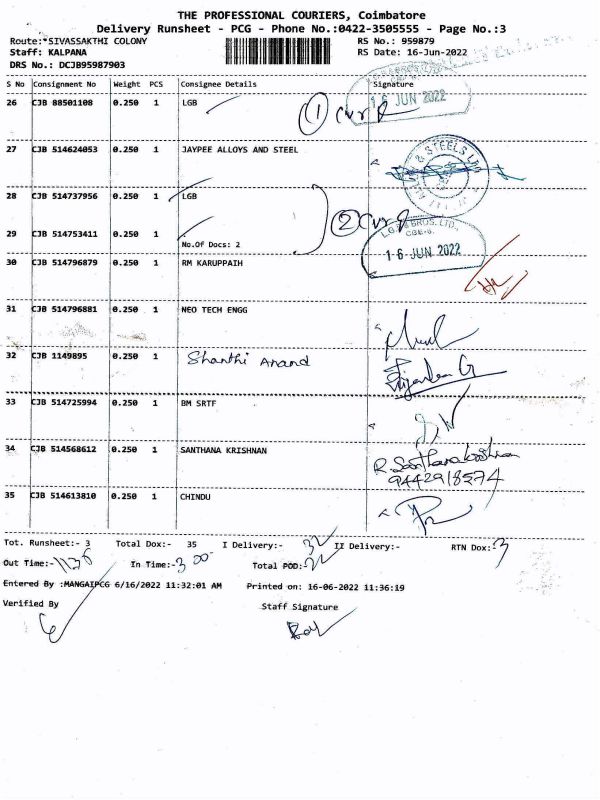 THE PROFESSIONAL COURIERS, Coimbatore
Delivery Runsheet - PCG - Phone No.:0422-3505555 - Page No.:3
Route:*SIVASSAKTHI COLONY RS No.: 959879
Staff: KALPANA RS Date: 16-Jun-2022
DRS No.: DCJB95987903
S No Consignment No Weight PCS Consignee Details Signature
26 CJB 88501108 0.250 1 LGB 1 16 JUN 2022
27 CJB 514624053 0.250 1 JAYPEE ALLOYS AND STEEL
& STEELS LTD
28 CJB 514737956 0.250 1 LGB 2
29 CJB 514753411 0.250 1
L.G.B. & BROS. LTD.,
CBE-6.
No.Of Docs: 2
16 JUN 2022
30 CJB 514796879 0.250 1 RM KARUPPAIH
31 CJB 514796881 0.250 1 NEO TECH ENGG
32 CJB 1149895 0.250 1 Shanthi Anand
33 CJB 514725994 0.250 1 BM SRTF
34 CJB 514568612 0.250 1 SANTHANA KRISHNAN R. Santhanakrishnan
9442918574
35 CJB 514613810 0.250 1 CHINDU
Tot. Runsheet:- 3 Total Dox:- 35 I Delivery:- 32 II Delivery:- RTN Dox:- 3
Out Time:- 1136 In Time:- 3 00 Total POD:-
Entered By :MANGAIPCG 6/16/2022 11:32:01 AM Printed on: 16-06-2022 11:36:19
Verified By Staff Signature